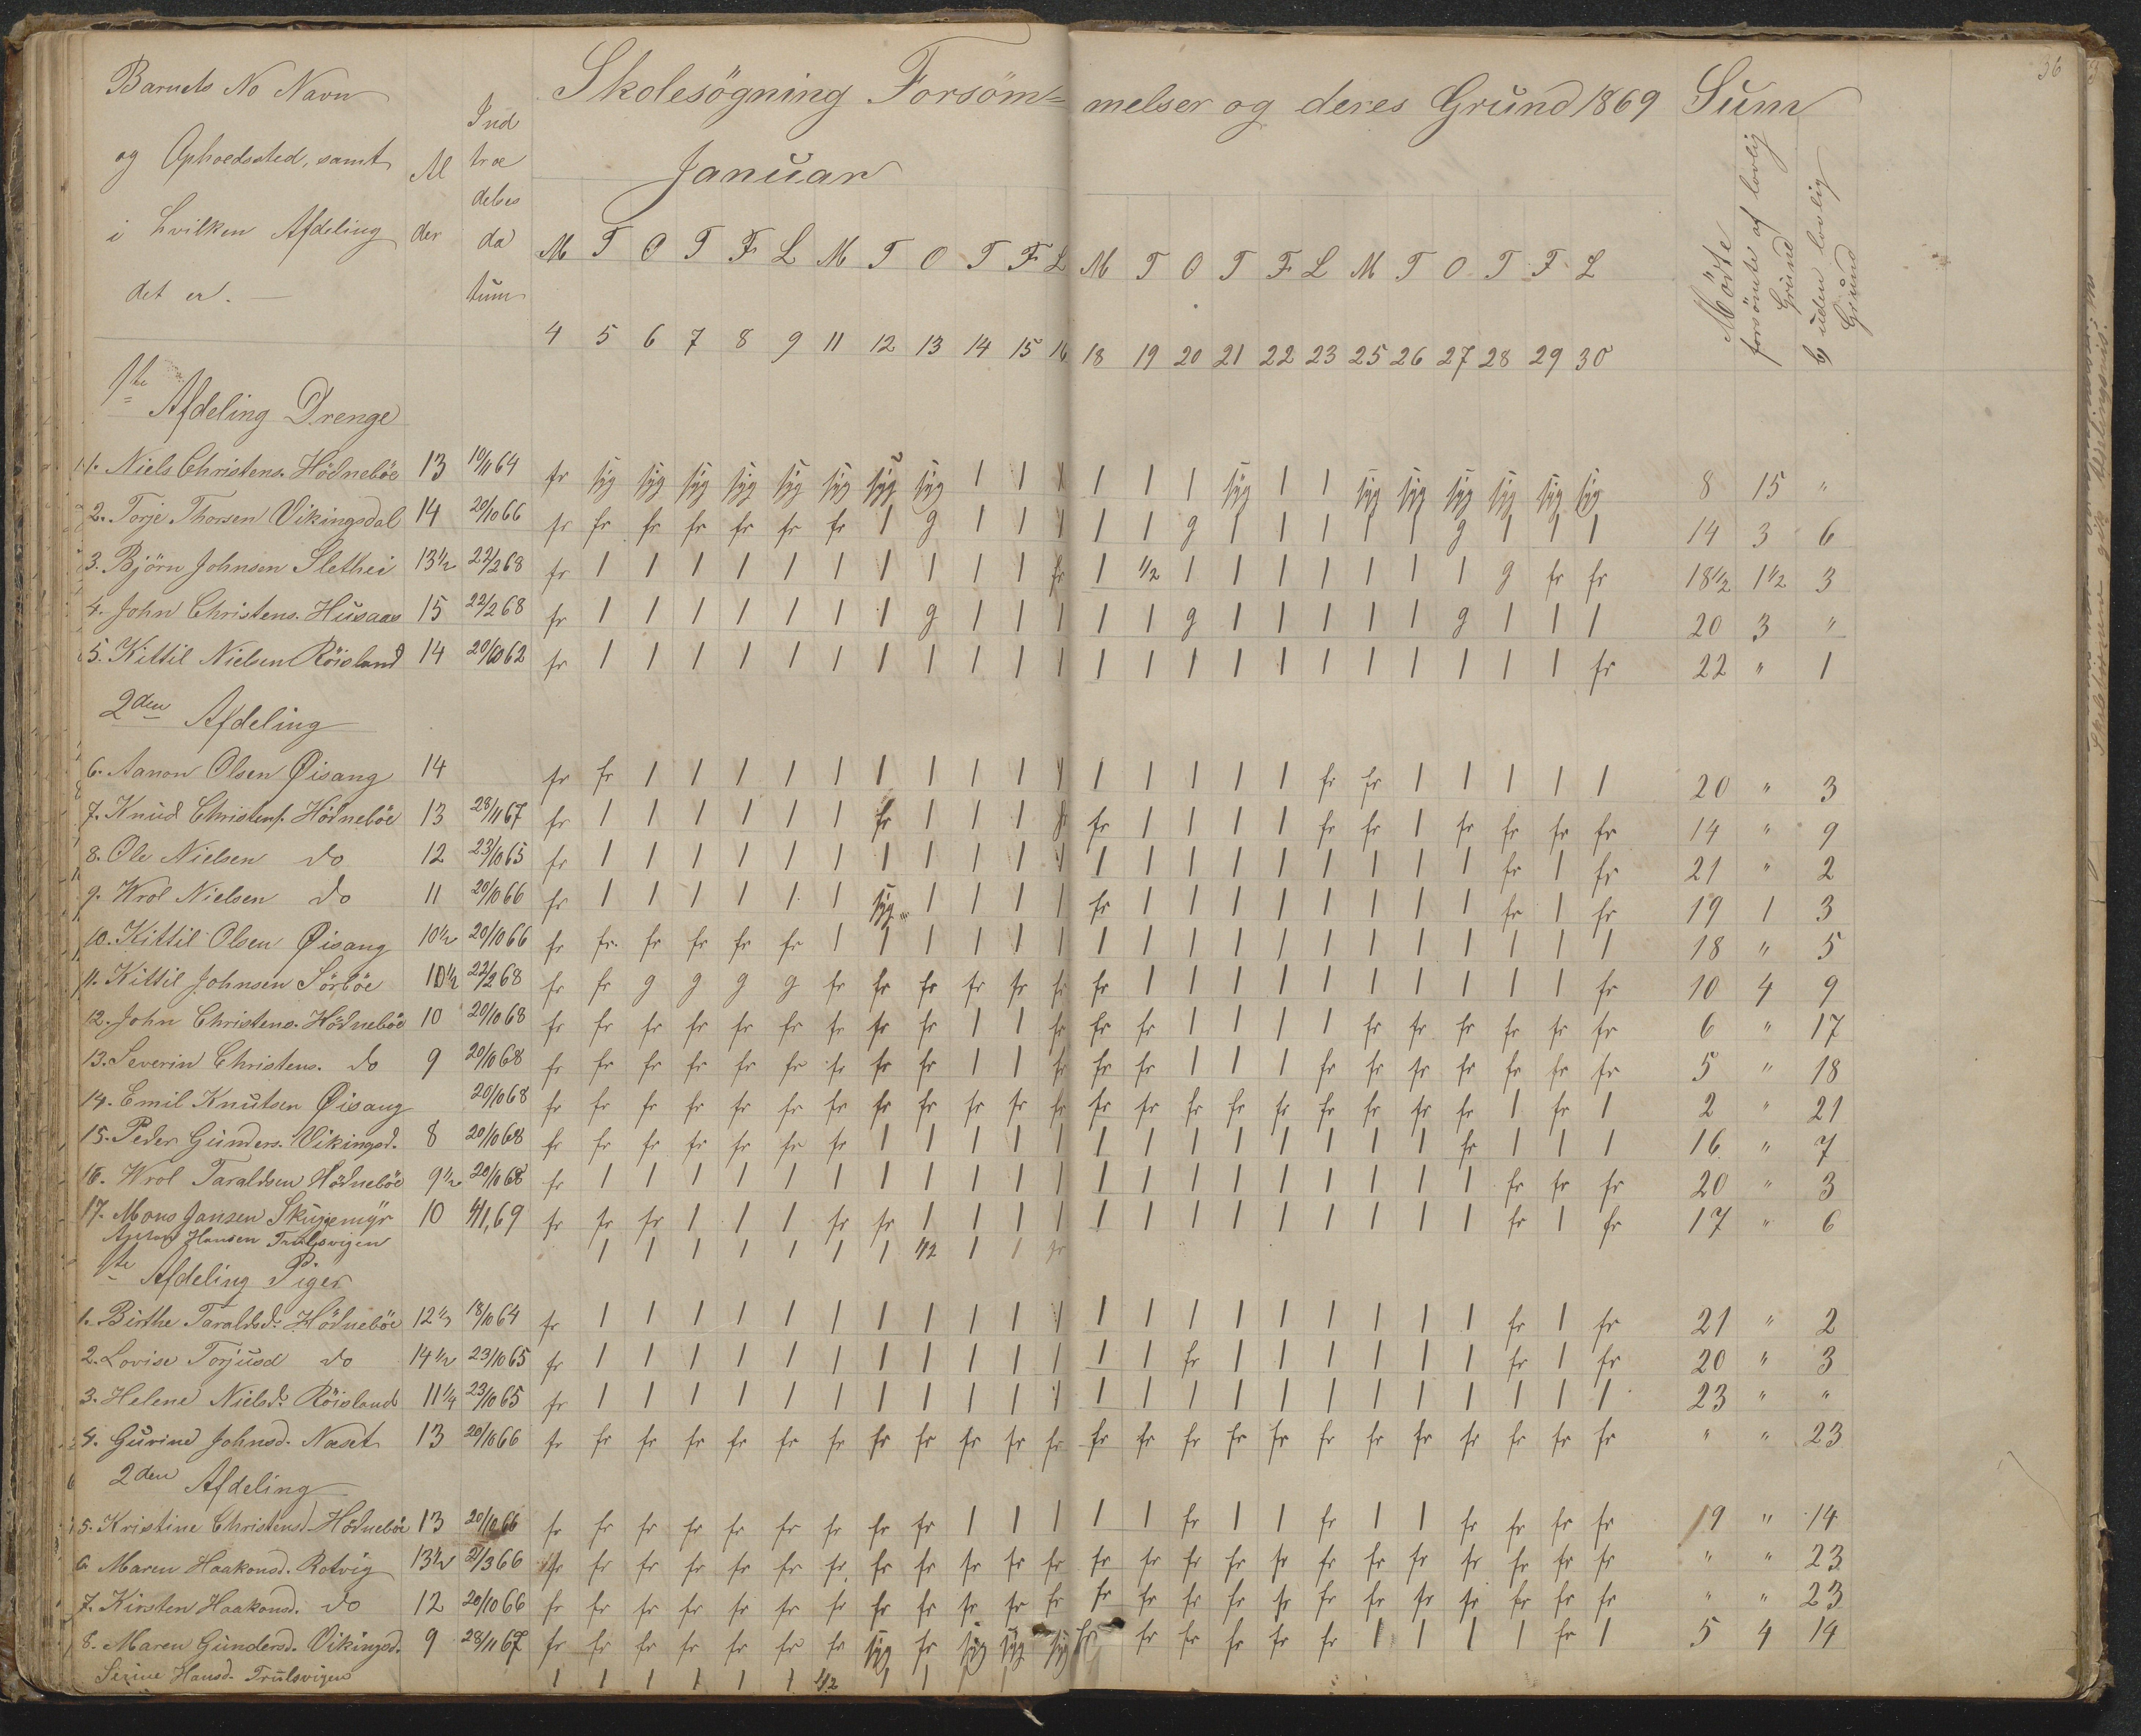 36
Barnets No Navn
og Opholdssted, samt
i hvilken Afdeling
det er. —
Al
der
Ind
træ
delses
da
tum
Skolesögning Forsöm= melser og deres Grund 1869 Sum
Januar
Mödte
forsömte af lovlig Grund
b) uden lovlig Grund
M T O T F L M T O T F L M T O T F L M T O T F L
4 5 6 7 8 9 11 12 13 14 15 16 18 19 20 21 22 23 25 26 27 28 29 30
1ste Afdeling Drenge
1. Niels Christens. Hödneböe 13 10/11 64 fr syg syg syg syg syg syg syg syg 1 1 1 1 1 1 syg 1 1 syg syg syg syg syg syg 8 15 "
2. Torje Thorsen Vikingsdal 14 20/10 66 fr fr fr fr fr fr fr 1 g 1 1 1 1 1 g 1 1 1 1 1 g 1 1 1 14 3 6
3. Björn Johnsen Slethei 13½ 22/2 68 fr 1 1 1 1 1 1 1 1 1 1 fr 1 1/2 1 1 1 1 1 1 1 g fr fr 18½ 1½ 3
4. John Christens. Husaas 15 22/2 68 fr 1 1 1 1 1 1 1 g 1 1 1 1 1 g 1 1 1 1 1 g 1 1 1 20 3 "
5. Kittil Nielsen Röisland 14 20/10 62 fr 1 1 1 1 1 1 1 1 1 1 1 1 1 1 1 1 1 1 1 1 1 1 fr 22 " 1
2den Afdeling
6. Aanon Olsen Øisang 14 fr fr 1 1 1 1 1 1 1 1 1 1 1 1 1 1 1 fr fr 1 1 1 1 1 20 " 3
7. Knud Christens. Hödneböe 13 28/11 67 fr 1 1 1 1 1 1 fr 1 1 1 fr fr 1 1 1 1 fr fr 1 fr fr fr fr 14 " 9
8. Ole Nielsen do 12 23/10 65 fr 1 1 1 1 1 1 1 1 1 1 1 1 1 1 1 1 1 1 1 1 fr 1 fr 21 " 2
9. Wrol Nielsen do 11 20/10 66 fr 1 1 1 1 1 1 syg 1 1 1 1 fr 1 1 1 1 1 1 1 1 fr 1 fr 19 1 3
10. Kittil Olsen Øisang 10½ 20/10 66 fr fr fr fr fr fr 1 1 1 1 1 1 1 1 1 1 1 1 1 1 1 1 1 1 18 " 5
11. Kittil Johnsen Sörböe 10½ 22/2 68 fr fr g g g g fr fr fr fr fr fr fr 1 1 1 1 1 1 1 1 1 1 fr 10 4 9
12. John Christens. Hödneböe 10 20/10 68 fr fr fr fr fr fr fr fr fr 1 1 fr fr fr 1 1 1 1 fr fr fr fr fr fr 6 " 17
13. Severin Christens. do 9 20/10 68 fr fr fr fr fr fr fr fr fr 1 1 fr fr fr 1 1 1 fr fr fr fr fr fr fr 5 " 18
14. Emil Knutsen Øisang 20/10 68 fr fr fr fr fr fr fr fr fr fr fr fr fr fr fr fr fr fr fr fr fr 1 fr 1 2 " 21
15. Peder Gunders. Vikingsd. 8 20/10 68 fr fr fr fr fr fr fr 1 1 1 1 1 1 1 1 1 1 1 1 1 fr 1 1 1 16 " 7
16. Wrol Taraldsen Hödneböe 9½ 20/10 68 fr 1 1 1 1 1 1 1 1 1 1 1 1 1 1 1 1 1 1 1 1 fr fr fr 20 " 3
17. Mons Jansen Skujemyr 10 4/1,69 fr fr fr 1 1 1 fr fr 1 1 1 1 1 1 1 1 1 1 1 1 1 fr 1 fr 17 " 6
Hansen Trulsvigen 1 1 1 1 1 1 1 1/2 1 1 fr
1ste Afdeling Piger
1. Birthe Taraldsd. Hödneböe 12½ 18/10 64 fr 1 1 1 1 1 1 1 1 1 1 1 1 1 1 1 1 1 1 1 1 fr 1 fr 21 " 2
2. Lovise Torjusd do 14½ 23/10 65 fr 1 1 1 1 1 1 1 1 1 1 1 1 1 fr 1 1 1 1 1 1 fr 1 fr 20 " 3
3. Helene Nielsd. Röisland 11¼ 23/10 65 fr 1 1 1 1 1 1 1 1 1 1 1 1 1 1 1 1 1 1 1 1 1 1 1 23 " "
4. Gurine Johnsd. Næset 13 20/10 66 fr fr fr fr fr fr fr fr fr fr fr fr fr fr fr fr fr fr fr fr fr fr fr fr " " 23
2den Afdeling
5. Kristine Christensd. Hödneböe 13 20/10 66 fr fr fr fr fr fr fr fr fr 1 1 1 1 1 fr 1 1 fr 1 1 fr fr fr fr 19 " 14
6 Maren Haakonsd. Rotvig 13½ 21/3 66 fr fr fr fr fr fr fr fr fr fr fr fr fr fr fr fr fr fr fr fr fr fr fr fr " " 23
7. Kirsten Haakonsd. do 12 20/10 66 fr fr fr fr fr fr fr fr fr fr fr fr fr fr fr fr fr fr fr fr fr fr fr fr " " 23
8. Maren Gundersd. Vikingsd. 9 28/11 67 fr fr fr fr fr fr fr syg fr syg syg syg fr fr fr fr fr fr 1 1 1 1 fr 1 5 4 14
Serine Hansd. Trulsvigen 1 1 1 1 1 1 1/2 1 1 1 1